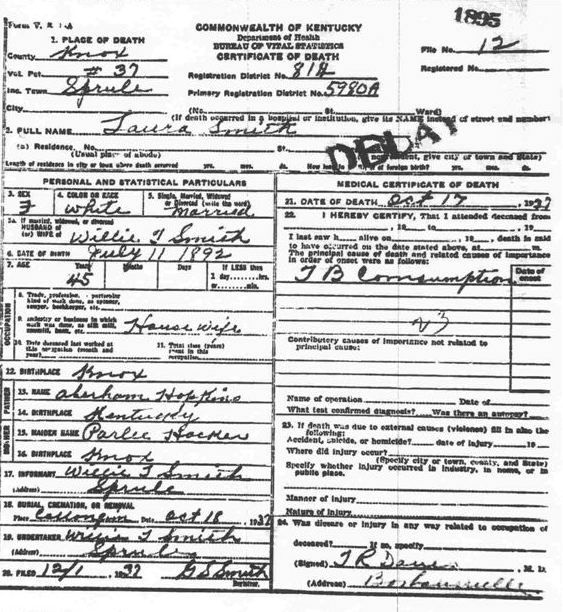 1895
COMMONWEALTH OF KENTUCKY
Department of Health
BUREAU OF VITAL STATISTICS
CERTIFICATE OF DEATH
File No. 12
Registered No.
1. PLACE OF DEATH
County Knox
Vot. Pct. # 37
Inc. Town Sprule
City
Registration District No. 818
Primary Registration District No. 5980A
(No. St. Ward)
(If death occurred in a hospital or institution, give its NAME instead of street and number)
2. FULL NAME Laura Smith
DELAY
(a) Residence, No. St.
(Usual place of abode)
give city or town and State)
Length of residence in city or town where death occurred yrs. mos. ds. of foreign birth? yrs. mos. ds.
PERSONAL AND STATISTICAL PARTICULARS
3. SEX F
4. COLOR OR RACE White
5. Single, Married, Widowed or Divorced (write the word) Married
5a. If married, widowed, or divorced
HUSBAND of
(or) WIFE of Willie T Smith
6. DATE OF BIRTH July 11 1892
7. AGE Years 45 Months Days If LESS than 1 day, hrs. or min.
OCCUPATION
8. Trade, profession, particular kind of work done, as spinner, sawyer, bookkeeper, etc.
9. Industry or business in which work was done, as silk mill, sawmill, bank, etc. House Wife
10. Date deceased last worked at this occupation (month and year)
11. Total time (years) spent in this occupation
12. BIRTHPLACE Knox
FATHER
13. NAME Aberham Hopkins
14. BIRTHPLACE Kentucky
MOTHER
15. MAIDEN NAME Parlee Hocker
16. BIRTHPLACE Knox
17. INFORMANT Willie T Smith
(Address) Sprule
18. BURIAL, CREMATION, OR REMOVAL
Place Date Oct 18, 1937
19. UNDERTAKER Willie T Smith
(Address) Sprule
20. FILED 12/1 1937 G S Smith
Registrar.
MEDICAL CERTIFICATE OF DEATH
21. DATE OF DEATH Oct 17 1937
22. I HEREBY CERTIFY, That I attended deceased from
, 19 to , 19
I last saw h alive on , 19 , death is said
to have occurred on the date stated above, at m.
The principal cause of death and related causes of importance
in order of onset were as follows:
Date of onset
T B Comsumption
23
Contributory causes of importance not related to
principal cause:
Name of operation Date of
What test confirmed diagnosis? Was there an autopsy?
23. If death was due to external causes (violence) fill in also the
following:
Accident, suicide, or homicide? date of injury 19
Where did injury occur?
(Specify city or town, county, and State)
Specify whether injury occurred in industry, in home, or in
public place.
Manner of injury
Nature of injury
24. Was disease or injury in any way related to occupation of
deceased? If so, specify
(Signed) T R Davis, M. D.
(Address) Barbourville